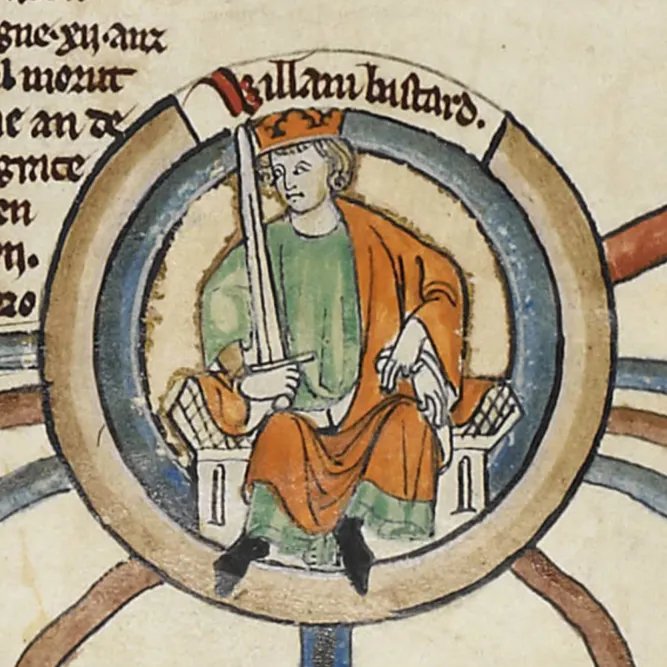 gne·xij·anz
l morut
e an de
gnice
en
Willam bastard.